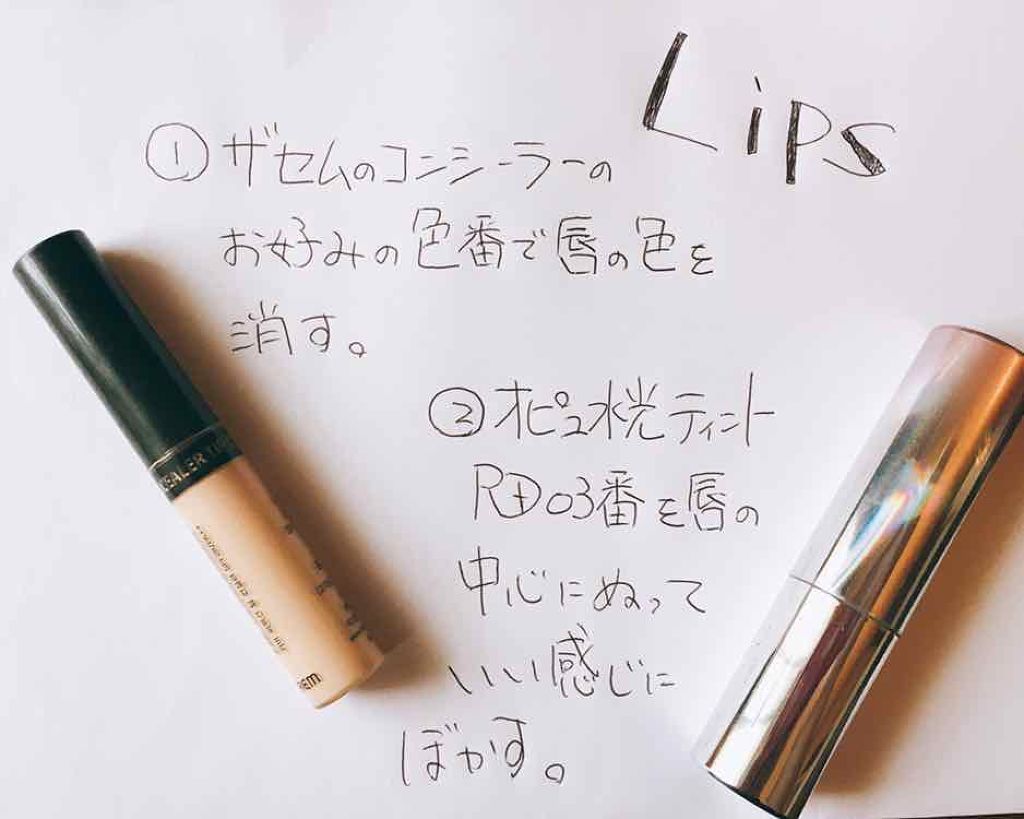 Lips
① ザセムのコンシーラーの
お好みの色番で唇の色を
消す。
② オピュ水光ティント
RD03番を唇の
中心にぬって
いい感じに
ぼかす。